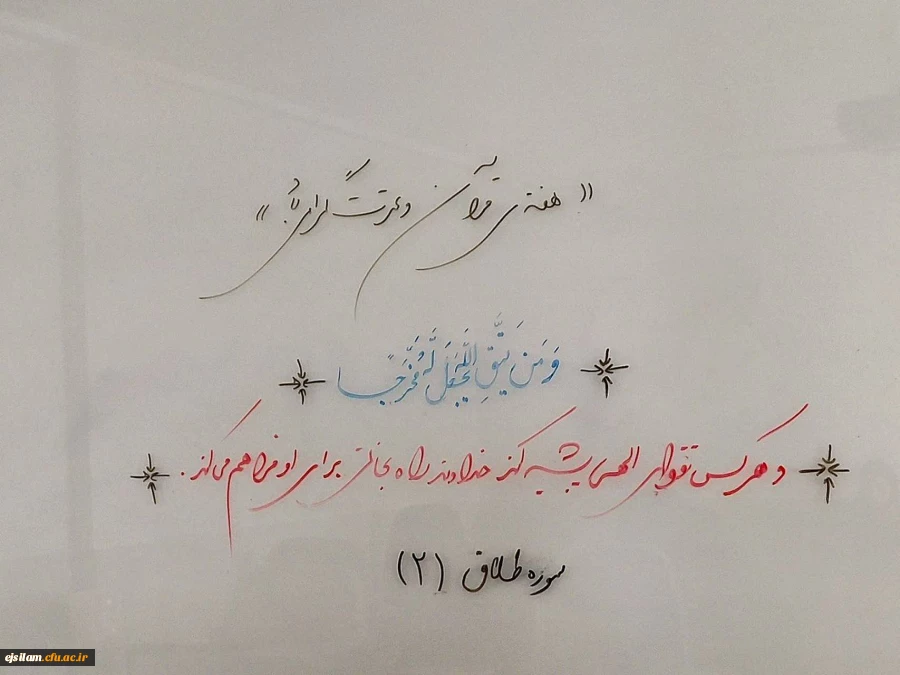 « هفته‌ی قرآن و عترت گرامی باد »
وَمَن يَتَّقِ اللَّهَ يَجْعَل لَّهُ مَخْرَجًا
و هر کس تقوای الهی پیشه کند خداوند راه نجاتی برای او فراهم می‌کند .
سوره طلاق (۲)
ejsilam.cfu.ac.ir